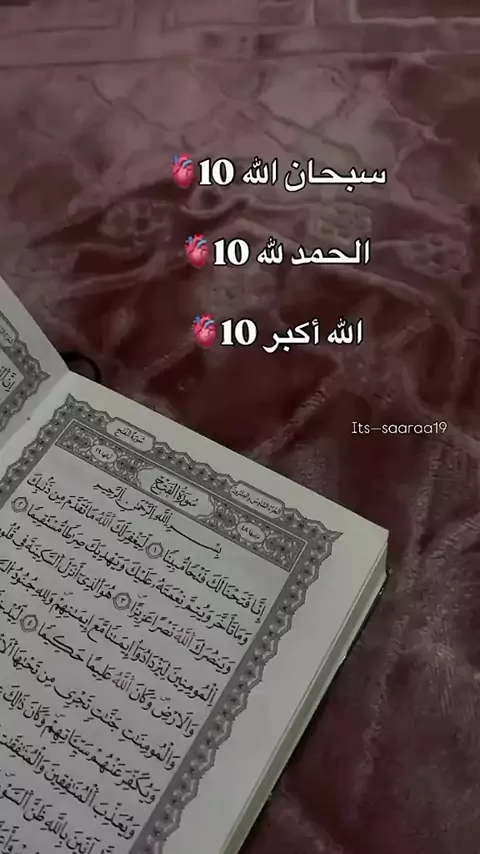 سبحان الله 10🫀
الحمد لله 10🫀
الله أكبر 10🫀
Its—saaraa19
سورة الفتح
سُورَةُ الفَتْحِ
بِسْمِ اللَّهِ الرَّحْمَٰنِ الرَّحِيمِ
إِنَّا فَتَحْنَا لَكَ فَتْحًا مُّبِينًا ١ لِّيَغْفِرَ لَكَ اللَّهُ مَا تَقَدَّمَ مِن ذَنۢبِكَ
وَمَا تَأَخَّرَ وَيُتِمَّ نِعْمَتَهُۥ عَلَيْكَ وَيَهْدِيَكَ صِرَٰطًا مُّسْتَقِيمًا ٢
وَيَنصُرَكَ اللَّهُ نَصْرًا عَزِيزًا ٣ هُوَ الَّذِىٓ أَنزَلَ السَّكِينَةَ فِى
الْمُؤْمِنِينَ لِيَزْدَادُوٓا۟ إِيمَٰنًا مَّعَ إِيمَٰنِهِمْ وَلِلَّهِ جُنُودُ
وَالْأَرْضِ وَكَانَ اللَّهُ عَلِيمًا حَكِيمًا ٤
وَالْمُؤْمِنَٰتِ جَنَّٰتٍ تَجْرِى مِن تَحْتِهَا
وَيُكَفِّرَ عَنْهُمْ سَيِّـَٔاتِهِمْ وَكَانَ ذَٰلِكَ
وَيُعَذِّبَ الْمُنَٰفِقِينَ وَالْمُنَٰفِقَٰتِ
بِاللَّهِ ظَنَّ